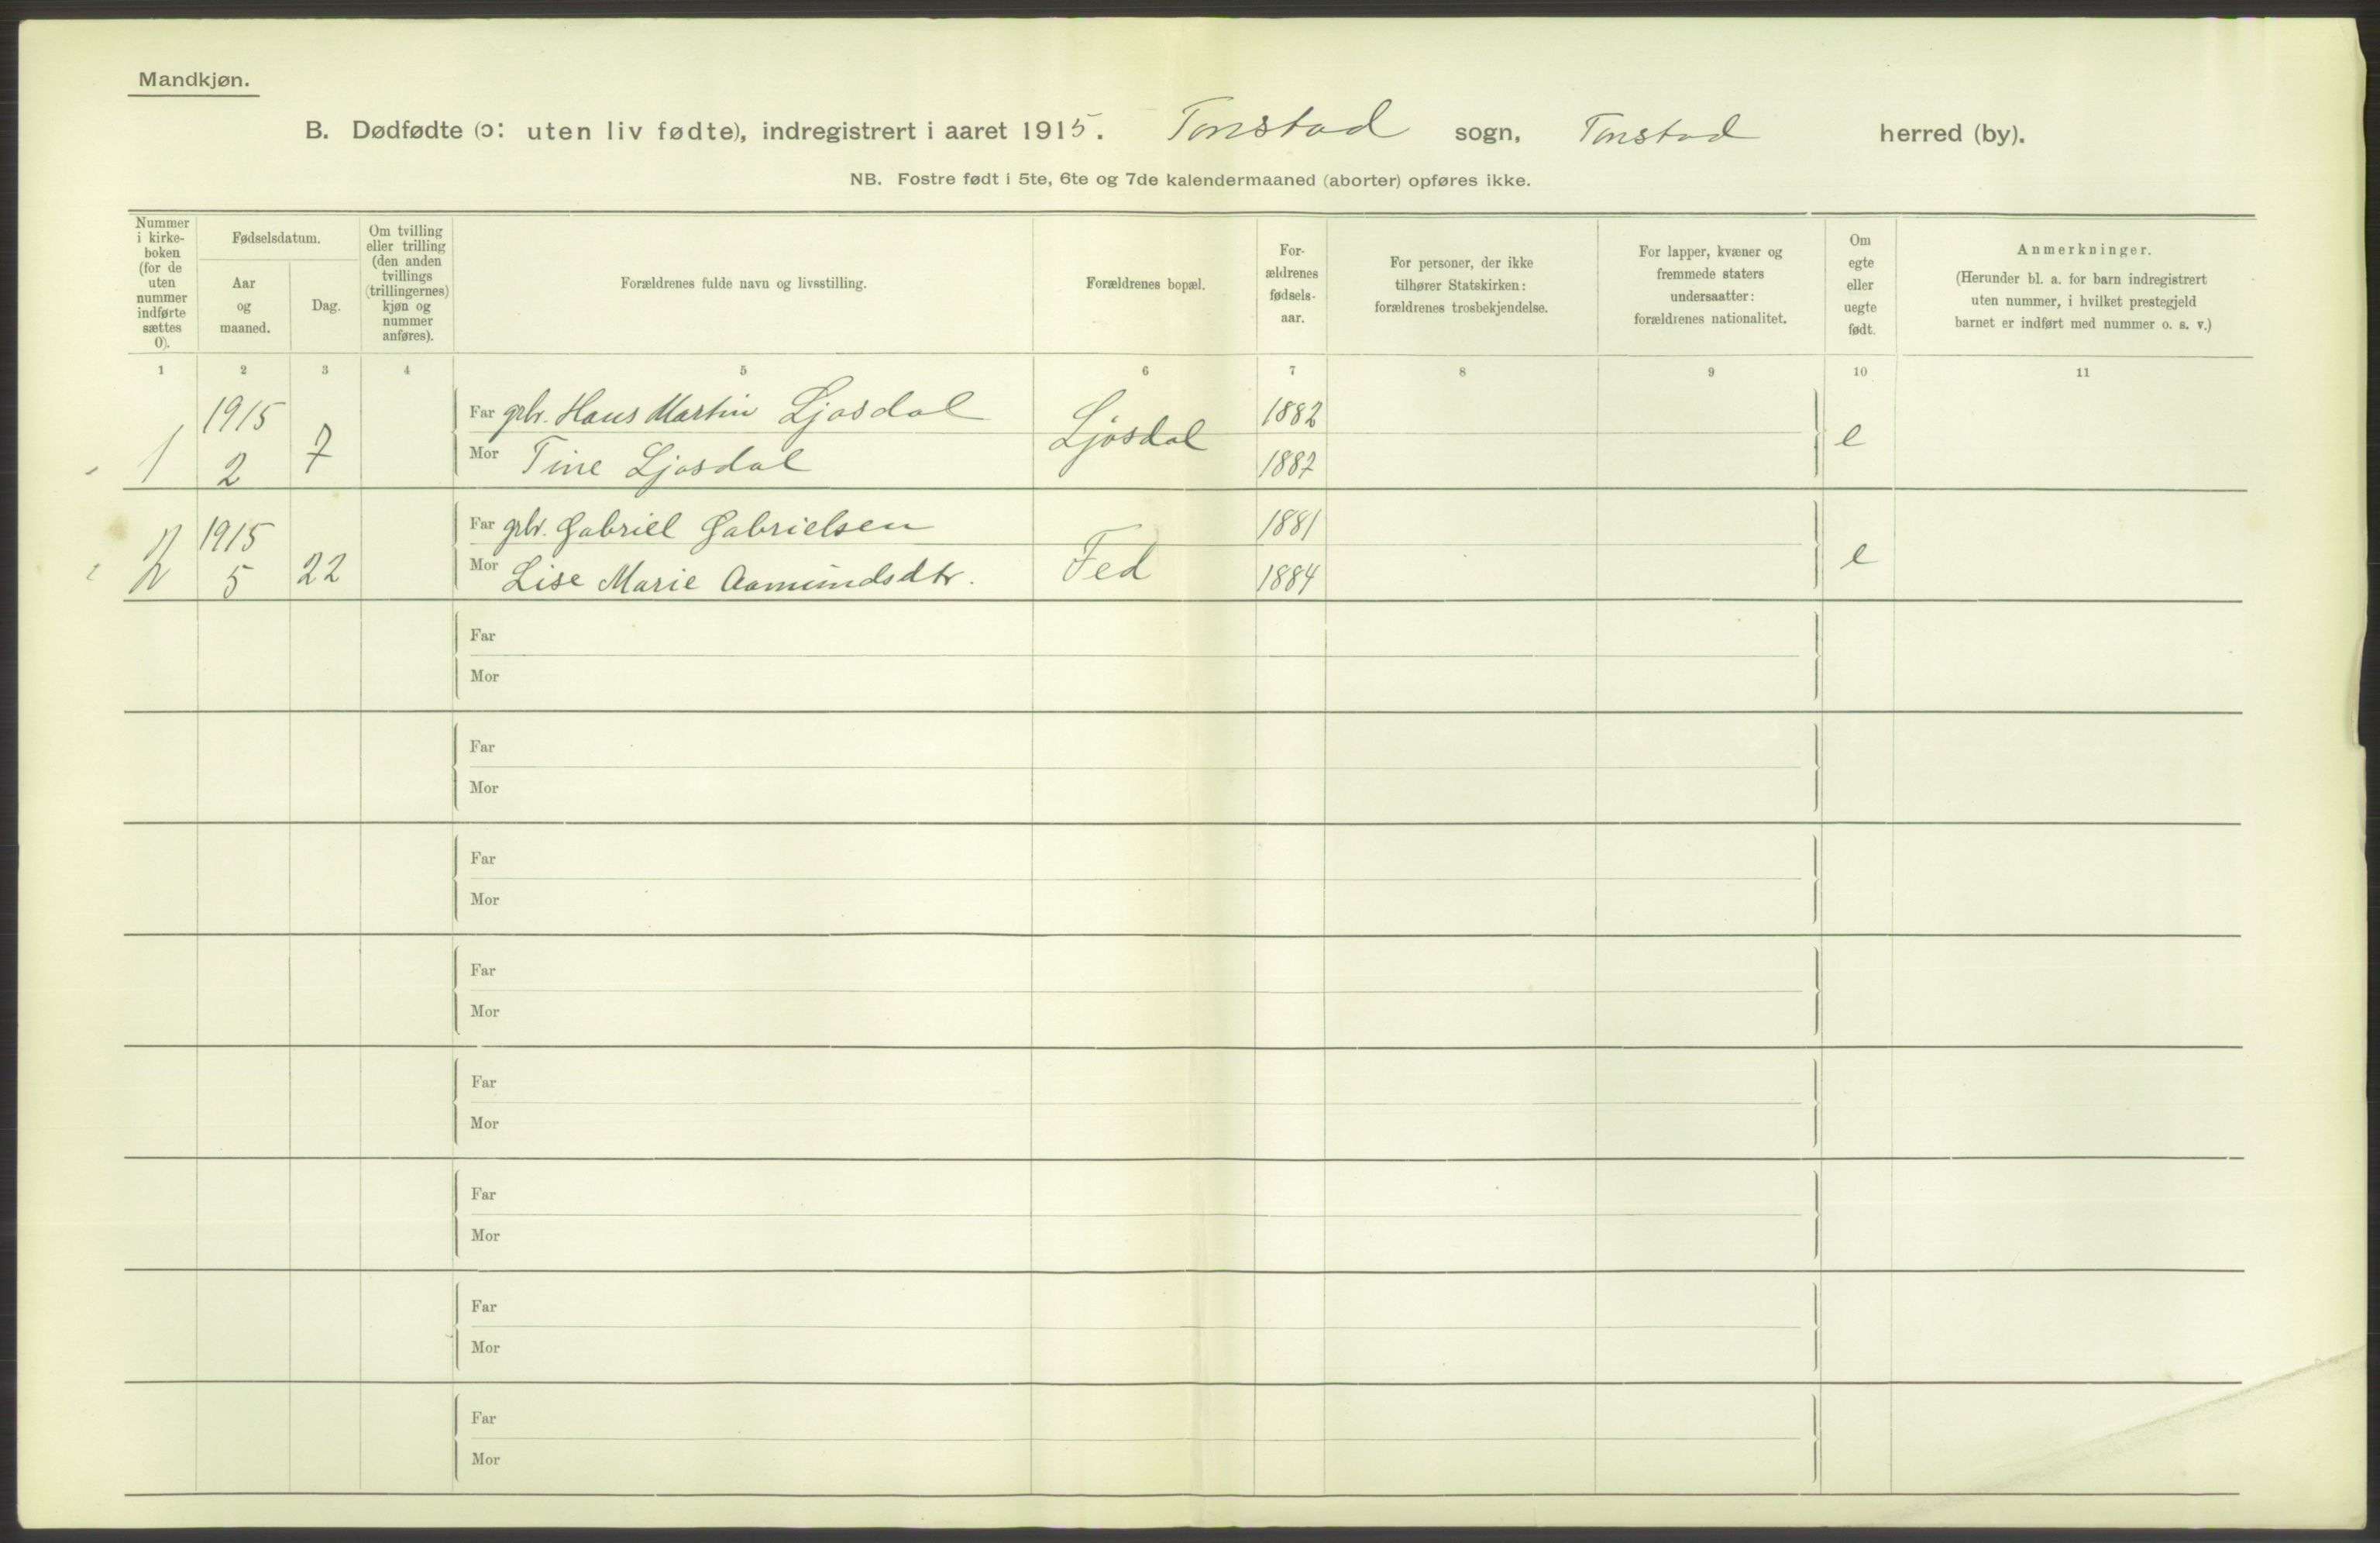 Mandkjøn.
B. Dødfødte (ɔ: uten liv fødte), indregistrert i aaret 1915. Tonstad sogn, Tonstad herred (by).
NB. Fostre født i 5te, 6te og 7de kalendermaaned (aborter) opføres ikke.
Nummer
i kirke-
boken
(for de
uten
nummer
indførte
sættes
0).
Fødselsdatum.
Aar
og
maaned.
Dag.
Om tvilling
eller trilling
(den anden
tvillings
(trillingernes)
kjøn og
nummer
anføres).
Forældrenes fulde navn og livsstilling.
Forældrenes bopæl.
For-
ældrenes
fødsels-
aar.
For personer, der ikke
tilhører Statskirken:
forældrenes trosbekjendelse.
For lapper, kvæner og
fremmede staters
undersaatter:
forældrenes nationalitet.
Om
egte
eller
uegte
født.
Anmerkninger.
(Herunder bl. a. for barn indregistrert
uten nummer, i hvilket prestegjeld
barnet er indført med nummer o. s. v.)
1 2 3 4 5 6 7 8 9 10 11
1915 Far gbr. Hans Martin Ljosdal 1882
1 2 7 Mor Tine Ljosdal Ljosdal 1887 e
1915 Far gbr. Gabriel Gabrielsen 1881
2 5 22 Mor Lise Marie Aamundsdtr. Fed 1884 e
Far
Mor
Far
Mor
Far
Mor
Far
Mor
Far
Mor
Far
Mor
Far
Mor
Far
Mor